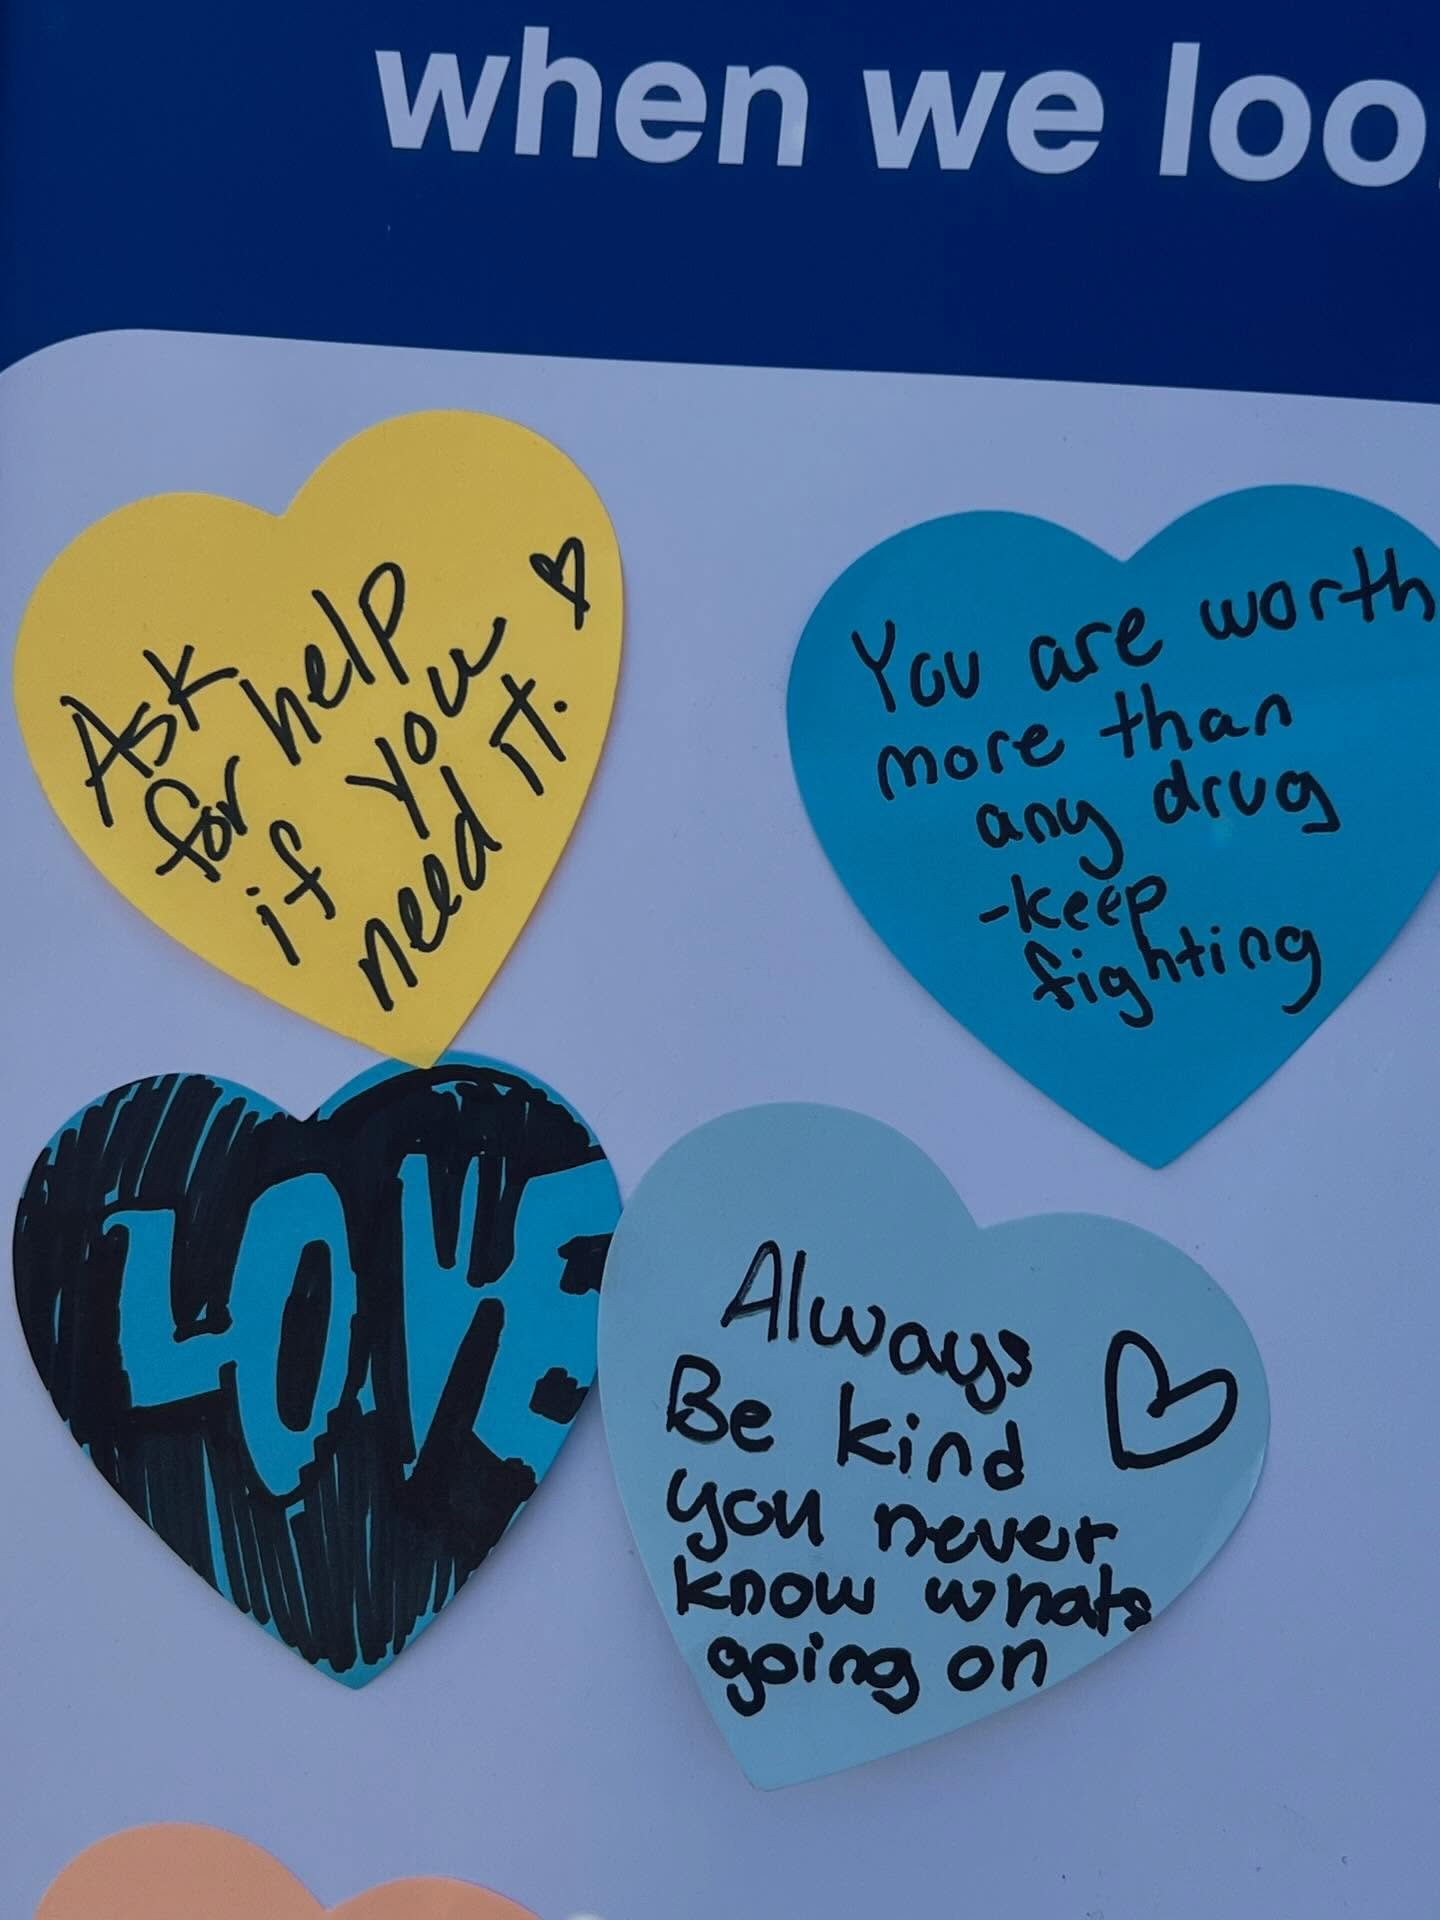 when we loo
Ask
for help
if you
need IT.
You are worth
more than
any drug
-keep
fighting
LOVE
Always
Be kind
you never
know whats
going on